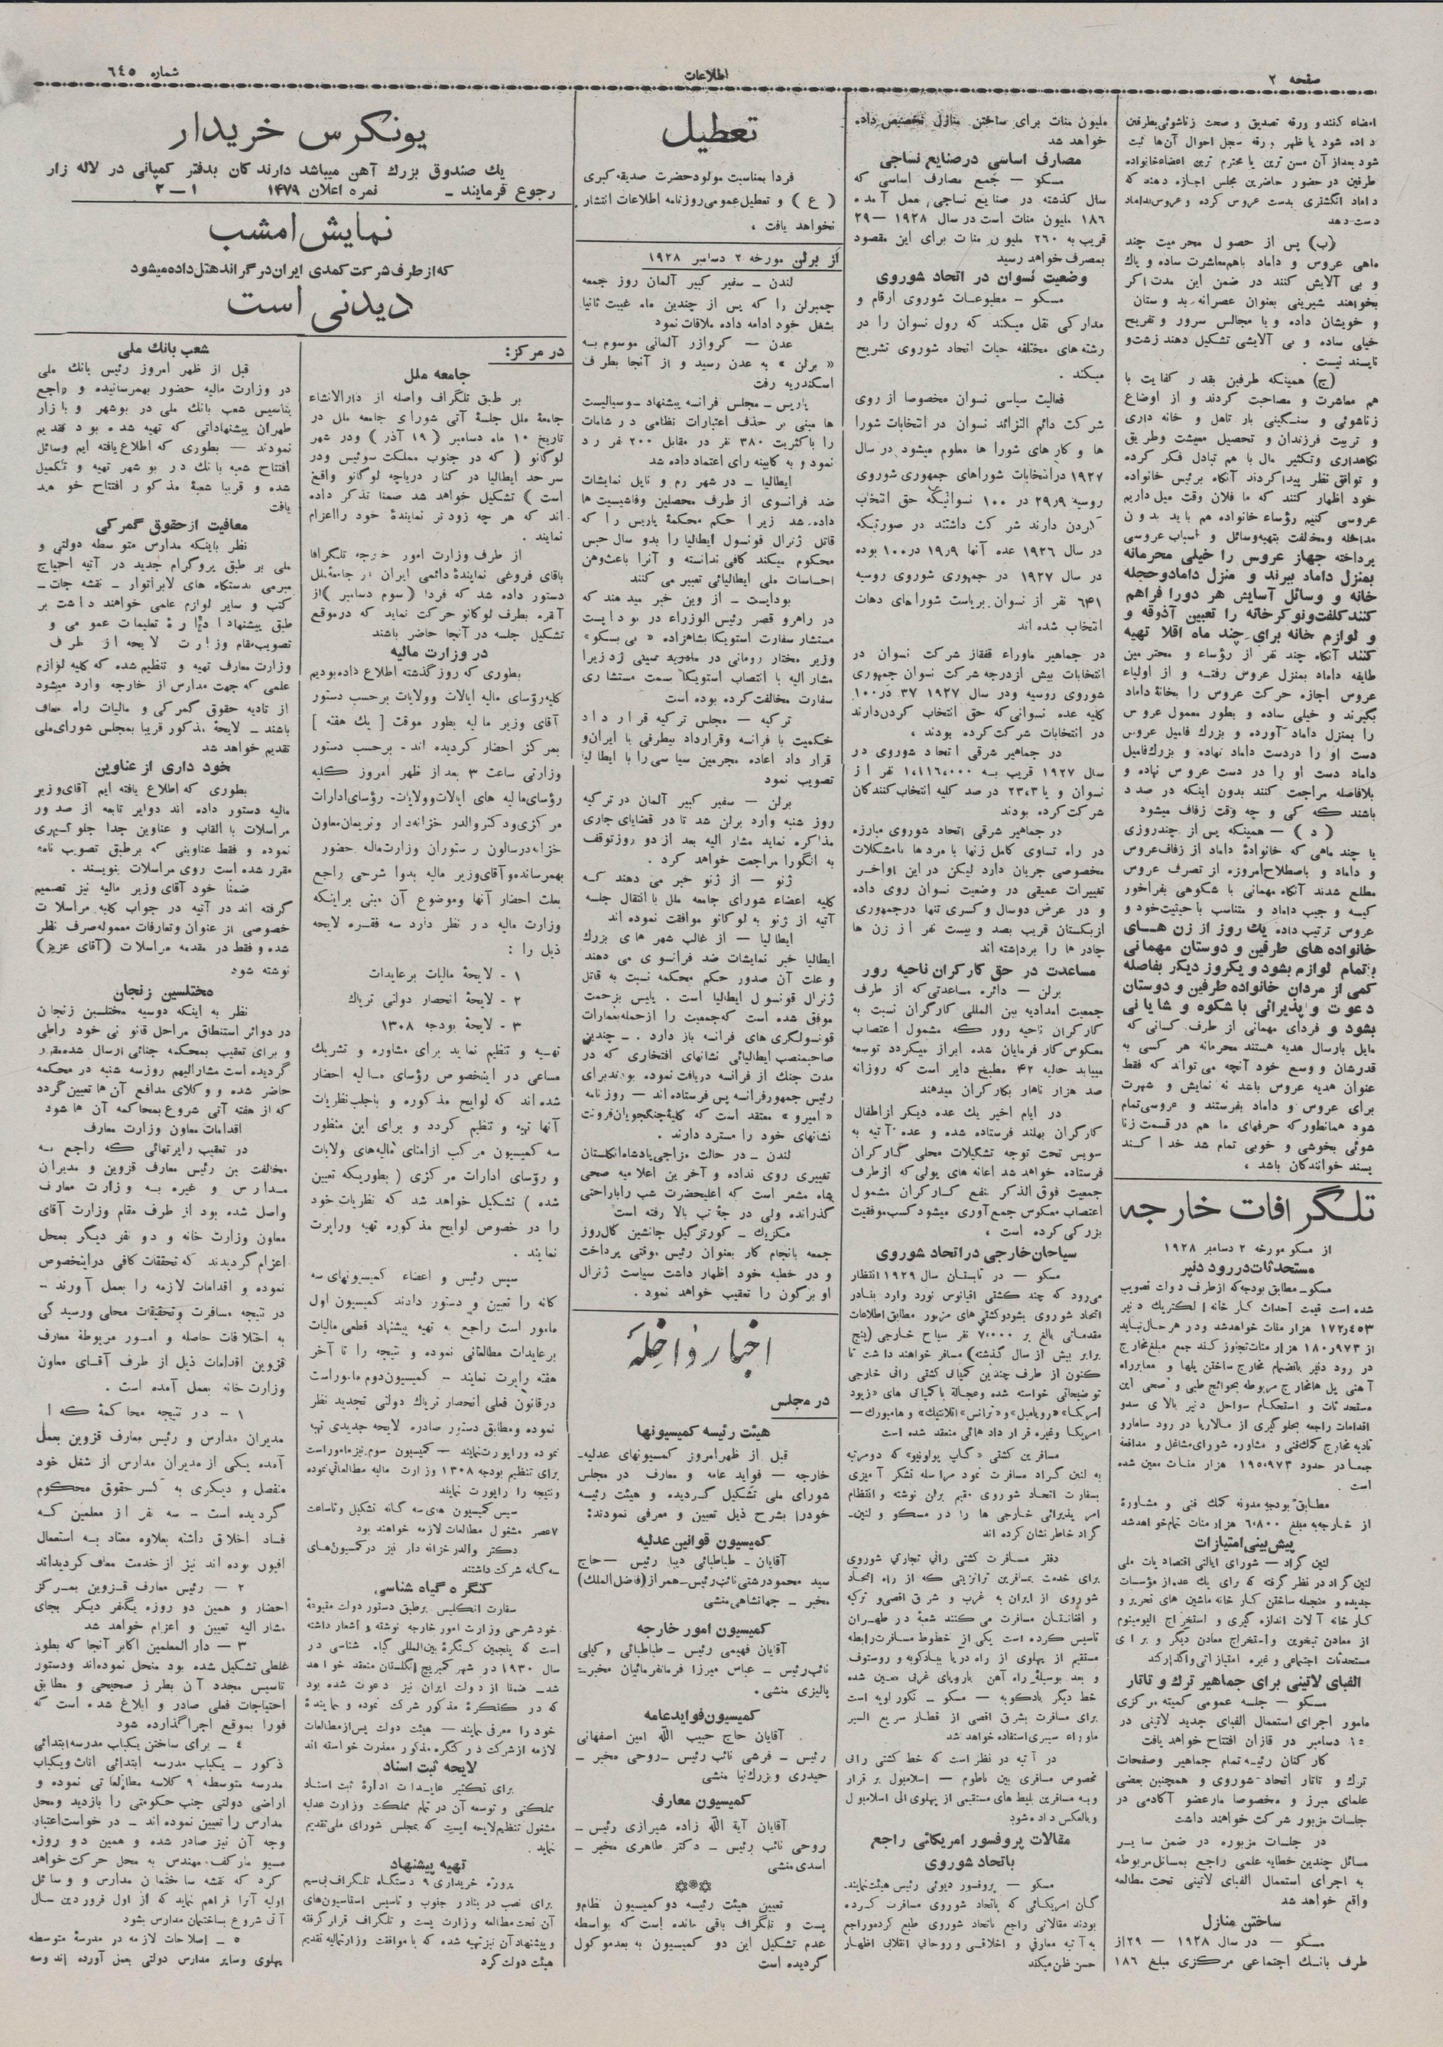 صفحه ۲
اطلاعات
شماره ٦٤٥
امضاء کنندو ورقه تصدیق و صحت زناشوئی بطرفین
داده شود یا ظهر ورقه سجل احوال آن‌ها ثبت
شود بعد از آن مسن ترین یا محترم ترین اعضاء خانواده
طرفین در حضور حاضرین مجلس اجازه دهند که
داماد انگشتری بدست عروس کرده و عروس بداماد
دست دهد
(ب) پس از حصول محرمیت چند
ماهی عروس و داماد باهم معاشرت ساده و پاك
و بی آلایش کنند در ضمن این مدت اکر
بخواهند شیرینی بعنوان عصرانه بدوستان
و خویشان داده و یا مجالس سرور و تفریح
خیلی ساده و بی آلایشی تشکیل دهند زشت و
ناپسند نیست .
(ج) همینکه طرفین بقدر کفایت با
هم معاشرت و مصاحبت کردند و از اوضاع
زناشوئی و سنگینی بار تاهل و خانه داری
و تربیت فرزندان و تحصیل معیشت و طریق
نگاهداری و تکثیر مال با هم تبادل فکر کرده
و توافق نظر پیدا کردند آنگاه برئیس خانواده
خود اظهار کنند که ما فلان وقت میل داریم
عروسی کنیم رؤساء خانواده هم باید بدون
مداخله و مخالفت بتهیه وسائل و اسباب عروسی
پرداخته جهاز عروس را خیلی محرمانه
بمنزل داماد ببرند و منزل داماد و حجله
خانه و وسائل آسایش هر دو را فراهم
کنند کلفت و نوکر خانه را تعیین آذوقه و
و لوازم خانه برای چند ماه اقلا تهیه
کنند آنگاه چند نفر از رؤساء و محترمین
طایفه داماد بمنزل عروس رفته و از اولیاء
عروس اجازه حرکت عروس را بخانه داماد
بگیرند و خیلی ساده و بطور معمول عروس
را بمنزل داماد آورده و بزرك فامیل عروس
دست او را در دست داماد نهاده و بزرك فامیل
داماد دست او را در دست عروس نهاده و
بلافاصله مراجعت کنند بدون اینکه در صدد
باشند که کی و چه وقت زفاف میشود
(د) — همینکه پس از چند روزی
یا چند ماهی که خانوادهٔ داماد از زفاف عروس
و داماد و باصطلاح امروزه از تصرف عروس
مطلع شدند آنگاه مهمانی با شکوهی بفراخور
کیسه و جیب داماد و متناسب با حیثیت خود و
عروس ترتیب داده یك روز از زن های
خانواده های طرفین و دوستان مهمانی
بتمام لوازم بشود و یکروز دیگر بفاصله
کمی از مردان خانواده طرفین و دوستان
دعوت و پذیرائی با شکوه و شایانی
بشود و فردای مهمانی از طرف کسانی که
مایل بارسال هدیه هستند محرمانه هر کسی به
قدر شان و وسع خود آنچه می تواند که فقط
عنوان هدیه عروس باشد نه نمایش و شهرت
برای عروس و داماد بفرستند و عروسی تمام
شود همانطور که حرفهای ما هم در قسمت زنا
شوئی بخوشی و خوبی تمام شد خدا کند
پسند خوانندکان باشد .
تلگرافات خارجه
از مسکو مورخه ۲ دسامبر ۱۹۲۸
مستحدثات در رود دنپر
مسکو - مطابق بودجه که از طرف دولت تصویب
شده است قیمت احداث کارخانهٔ الکتریك دنپر
۱۷۲ر۴۵۳ هزار منات خواهد شد و در هر حال نباید
از ۱۸۰ر۹۷۳ هزار منات تجاوز کند جمع مبلغ مخارج
در رود دنپر بانضمام مخارج ساختن پلها و معابر راه
آهنی پل ها مخارج مربوطه بحوائج طبی و صحی این
مستحدثات و استحکام سواحل دنپر بالای سدو
اقدامات راجعه بجلوگیری از مالاریا در رود سامارو
تادیه مخارج کمك فنی و مشاوره شورای مشاغل و مدافعه
جمعا در حدود ۱۹۵۰۹۷۳ هزار منات معین شده
است .
مطابق بودجه مدونه کمك فنی و مشاورهٔ
از خارجه به مبلغ ۶۰۸۰۰ هزار منات تمام خواهد شد
پیش بینی امتیازات
لنین گراد - شورای ایالتی اقتصادیات ملی
لنین گراد در نظر گرفته که برای یك عده از مؤسسات
جدیده و منجمله ساختن کارخانه ماشین های تحریر و
کارخانه آلات اندازه گیری و استخراج الیومینوم
از معادن تیخوین و استخراج معادن دیگر و برای
مستحدثات اجتماعی و غیره امتیازاتی واگذار کند
الفبای لاتینی برای جماهیر ترك و تاتار
مسکو — جلسه عمومی کمیته مرکزی
مامور اجرای استعمال الفبای جدید لاتینی در
۱۵ دسامبر در قازان افتتاح خواهد یافت
کارکنان رئیسه تمام جماهیر وصفحات
ترك و تاتار اتحاد شوروی و همچنین بعضی
علمای مبرز و مخصوصا مار عضو آکادمی در
جلسات مزبور شرکت خواهند داشت
در جلسات مزبوره در ضمن سایر
مسائل چندین خطابه علمی راجع بمسائل مربوطه
به اجرای استعمال الفبای لاتینی تحت مطالعه
واقع خواهد شد
ساختن منازل
مسکو — در سال ۱۹۲۸ — ۲۹ از
طرف بانك اجتماعی مرکزی مبلغ ۱۸۶
ملیون منات برای ساختن منازل تخصیص داده
خواهد شد
مصارف اساسی در صنایع نساجی
مسکو — جمع مصارف اساسی که
سال گذشته در صنایع نساجی بعمل آمده
۱۸۶ ملیون منات است در سال ۱۹۲۸ — ۲۹
قریب به ۲۶۰ ملیون منات برای این مقصود
بمصرف خواهد رسید
وضعیت نسوان در اتحاد شوروی
مسکو — مطبوعات شوروی ارقام و
مدارکی نقل میکند که رول نسوان را در
رشته های مختلفه حیات اتحاد شوروی تشریح
میکند .
فعالیت سیاسی نسوان مخصوصا از روی
شرکت دائم التزائد نسوان در انتخابات شورا
ها و کارهای شورا ها معلوم میشود در سال
۱۹۲۷ در انتخابات شوراهای جمهوری شوروی
روسیه ۲۹ر۹ در ۱۰۰ نسوانیکه حق انتخاب
کردن دارند شرکت داشتند در صورتیکه
در سال ۱۹۲۶ عده آنها ۱۹ر۹ در ۱۰۰ بوده
در سال ۱۹۲۷ در جمهوری شوروی روسیه
۶۴۱ نفر از نسوان بریاست شوراهای دهات
انتخاب شده اند
در جماهیر ماوراء قفقاز شرکت نسوان در
انتخابات بیش از درجه شرکت نسوان جمهوری
شوروی روسیه و در سال ۱۹۲۷ ۳۷ در ۱۰۰
کلیه عده نسوانی که حق انتخاب کردن دارند
در انتخابات شرکت کرده بودند .
در جماهیر شرقی اتحاد شوروی در
سال ۱۹۲۷ قریب به ۱،۱۱۶،۰۰۰ نفر از
نسوان و یا ۲۳،۳ در صد کلیه انتخاب کنندکان
شرکت کرده بودند
در جماهیر شرقی اتحاد شوروی مبارزه
در راه تساوی کامل زنها با مردها با مشکلات
مخصوصی جریان دارد لیکن در این اواخر
تغییرات عمیقی در وضعیت نسوان روی داده
و در عرض دو سال و کسری تنها در جمهوری
ازبکستان قریب بصد و بیست نفر از زن ها
چادر ها را برداشته اند
مساعدت در حق کارکران ناحیه رور
برلن — دائره مساعدتی که از طرف
جمعیت امدادیه بین المللی کارگران نسبت به
کارگران ناحیه رور که مشمول اعتصاب
معکوس کار فرمایان شده ابراز میکردد توسعه
مییابد حالیه ۴۲ مطبخ دایر است که روزانه
صد هزار ناهار بکارگران میدهند
در ایام اخیر یك عده دیگر از اطفال
کارگران بهلند فرستاده شده و عده آتیه به
سویس تحت توجه تشکیلات محلی گارگران
فرستاده خواهد شد اعانه های پولی که از طرف
جمعیت فوق الذکر بنفع کارگران مشمول
اعتصاب معکوس جمع آوری میشود کسب موفقیت
بزرکی کرده است .
سیاحان خارجی در اتحاد شوروی
مسکو — در تابستان سال ۱۹۲۹ انتظار
می‌رود که چند کشتی اقیانوس نورد وارد بنادر
اتحاد شوروی بشود و کشتی های مزبور مطابق اطلاعات
مقدماتی بالغ بر ۷۰۰۰۰ نفر سیاح خارجی (پنج
برابر بیش از سال گذشته) مسافر خواهند داشت تا
کنون از طرف چندین کمپانی کشتی رانی خارجی
توضیحاتی خواسته شده و عجالة با کمپانی های «زیود
امریکا» «رویامیل» و «ترانس» «اتلانتیك» و هامبورك —
امریکا وغیره قرار داد هائی منعقد شده است
مسافرین کشتی «گاپ پولونیو» که دو مرتبه
به لنین گراد مسافرت نمود مراسله تشکر آمیزی
بسفارت اتحاد شوروی مقیم برلن نوشته و انتظام
امر پذیرائی خارجی ها را در مسکو و لنین-
گراد خاطر نشان کرده اند
دفتر مسافرت کشتی رانی تجاری شوروی
برای خدمت بمسافرین ترانزیتی که از راه اتحاد
شوروی از ایران به غرب و شرق اقصی و ترکیه
و افغانستان مسافرت می کنند شعبهٔ در طهران
تاسیس کرده است یکی از خطوط مسافرت رابطه
مستقیم از پهلوی از راه دریا ببادکوبه و روستوف
و بعد بوسیله راه آهن باروپای غربی معین شده
خط دیگر بادکوبه — مسکو — نکور لویه است
برای مسافرت بشرق اقصی از قطار سریع السیر
ماوراء سیبری استفاده خواهد شد
در آتیه در نظر است که خط کشتی رانی
مخصوص مسافری بین باطوم — اسلامبول بر قرار
و به مسافرین بلیط های مستقیمی از پهلوی الی اسلامبول
و بالعکس داده شود
مقالات پروفسور امریکائی راجع
باتحاد شوروی
مسکو — پروفسور دیوئی رئیس هیئت نمایند-
گان امریکائی که باتحاد شوروی مسافرت کرده
بودند مقالاتی راجع باتحاد شوروی طبع کرده و راجع
به آتیه معارفی و اخلاقی و روحانی انقلابی اظهار
حسن ظن میکند
تعطیل
فردا بمناسبت مولود حضرت صدیقه کبری
(ع) و تعطیل عمومی روزنامه اطلاعات انتشار
نخواهد یافت .
از برلن مورخه ۲ دسامبر ۱۹۲۸
لندن — سفیر کبیر آلمان روز جمعه
چمبرلن را که پس از چندین ماه غیبت ثانیا
بشغل خود ادامه داده ملاقات نمود
عدن — کروازر آلمانی موسوم به
«برلن» به عدن رسید و از آنجا بطرف
اسکندریه رفت
پاریس - مجلس فرانسه پیشنهاد و سیالیست
ها مبنی بر حذف اعتبارات نظامی در شامات
را باکثریت ۳۸۰ نفر در مقابل ۲۰۰ نفر رد
نمود و به کابینه رای اعتماد داده شد
ایطالیا — در شهر رم و ناپل نمایشات
ضد فرانسوی از طرف محصلین وفاشیست ها
داده شد زیرا حکم محکمهٔ پاریس را که
قاتل ژنرال قونسول ایطالیا را بدو سال حبس
محکوم میکند کافی ندانسته و آنرا باعث وهن
احساسات ملی ایطالیائی تعبیر می کنند
بوداپست — از وین خبر میدهند که
در راهرو قصر رئیس الوزراء در بوداپست
مستشار سفارت استویکا بشاهزاده «بی بسکو»
وزیر مختار رومانی در مادرید ممیئی زد زیرا
مشار الیه با انتصاب استویکا بسمت مستشاری
سفارت مخالفت کرده بوده است
ترکیه — مجلس ترکیه قرار داد
حکمیت با فرانسه و قرارداد بیطرفی با ایران و
قرار داد اعاده مجرمین سیاسی را با ایطالیا
تصویب نمود
برلن — سفیر کبیر آلمان در ترکیه
روز شنبه وارد برلن شد تا در قضایای جاری
مذاکره نماید مشار الیه بعد از دو روز توقف
به انگورا مراجعت خواهد کرد .
ژنو — از ژنو خبر می دهند که
کلیه اعضاء شورای جامعه ملل با انتقال جلسه
آتیه از ژنو به لوکانو موافقت نموده اند
ایطالیا — از غالب شهر های بزرك
ایطالیا خبر نمایشات ضد فرانسوی می دهند
و علت آن صدور حکم محکمه نسبت به قاتل
ژنرال قونسول ایطالیا است . پلیس بزحمت
موفق شده است که جمعیت را از حمله بعمارات
قونسولگری های فرانسه باز دارد . — چندین
صاحبمنصب ایطالیائی نشانهای افتخاری که در
مدت جنك از فرانسه دریافت نموده بودند برای
رئیس جمهور فرانسه پس فرستاده اند — روزنامه
«امپرو» معتقد است که کلیهٔ جنگجویان فرونت
نشانهای خود را مسترد دارند .
لندن — در حالت مزاجی پادشاه انگلستان
تغییری روی نداده و آخرین اعلامیه صحی
پناه مشعر است که اعلیحضرت شب را براحتی
گذرانده ولی درجهٔ تب بالا رفته است
مکزیك — کورتزگیل جانشین کال روز
جمعه بانجام کار بعنوان رئیس موقتی پرداخت
و در خطبه خود اظهار داشت سیاست ژنرال
اوبرگون را تعقیب خواهد نمود .
اخبار داخله
در مجلس
هیئت رئیسه کمیسیونها
قبل از ظهر امروز کمسیونهای عدلیه-
خارجه — فواید عامه و معارف در مجلس
شورای ملی تشکیل گردیده و هیئت رئیسه
خود را بشرح ذیل تعیین و معرفی نمودند:
کمیسیون قوانین عدلیه
آقایان - طباطبائی دیبا رئیس —حاج
سید محمود رشتی نائب رئیس - همراز(فاضل الملك)
مخبر — جهانشاهی منشی
کمیسیون امور خارجه
آقایان فهیمی رئیس — طباطبائی وکیلی
نائب رئیس — عباس میرزا فرمانفرمائیان مخبر —
پالیزی منشی .
کمیسیون فواید عامه
آقایان حاج حبیب الله امین اصفهانی
رئیس — فرشی نائب رئیس —روحی مخبر —
حیدری و بزرك نیا منشی
کمیسیون معارف
آقایان آیة الله زاده شیرازی رئیس —
روحی نائب رئیس — دکتر طاهری مخبر —
اسدی منشی
تعیین هیئت رئیسه دو کمیسیون نظام و
پست و تلگراف باقی مانده است که بواسطه
عدم تشکیل این دو کمیسیون به بعد موکول
گردیده است
یونکرس خریدار
یك صندوق بزرك آهن میباشد دارندکان بدفتر کمپانی در لاله زار
رجوع فرمایند — نمره اعلان ۱۴۷۹ ۱ — ۲
نمایش امشب
که از طرف شرکت کمدی ایران در گراند هتل داده میشود
دیدنی است
در مرکز:
جامعه ملل
بر طبق تلگراف واصله از دارالانشاء
جامعهٔ ملل جلسهٔ آتی شورای جامعه ملل در
تاریخ ۱۰ ماه دسامبر (۱۹ آذر) و در شهر
لوگانو ( که در جنوب مملکت سوئیس و در
سرحد ایطالیا در کنار دریاچه لوگانو واقع
است) تشکیل خواهد شد ضمنا تذکر داده
اند که هر چه زودتر نمایندهٔ خود را اعزام
نمایند .
از طرف وزارت امور خارجه تلگرافا
باقای فروغی نمایندهٔ دائمی ایران در جامعهٔ ملل
دستور داده شد که فردا (سوم دسامبر) از
آنقره بطرف لوکانو حرکت نماید که در موقع
تشکیل جلسه در آنجا حاضر باشند
در وزارت مالیه
بطوری که روز گذشته اطلاع داده بودیم
کلیه رؤسای مالیه ایالات و ولایات برحسب دستور
آقای وزیر مالیه بطور موقت [یك هفته]
بمرکز احضار گردیده اند - برحسب دستور
وزارتی ساعت ۳ بعد از ظهر امروز کلیه
رؤسای مالیه های ایالات و ولایات - رؤسای ادارات
مرکزی و دکتر والدر خزانه دار و نریمان معاون
خزانه در سالون رستوران وزارت مالیه حضور
بهمرسانده و آقای وزیر مالیه بدوا شرحی راجع
بعلت احضار آنها و موضوع آن مبنی بر اینکه
وزارت مالیه در نظر دارد سه فقره لایحه
ذیل را :
۱ - لایحهٔ مالیات بر عایدات
۲ - لایحهٔ انحصار دولتی تریاك
۳ - لایحهٔ بودجه ۱۳۰۸
تهیه و تنظیم نماید برای مشاوره و تشریك
مساعی در اینخصوص رؤسای مالیه احضار
شده اند که لوایح مذکوره و با جلب نظریات
آنها تهیه و تنظیم کردد و برای این منظور
سه کمیسیون مرکب از امنای مالیه‌های ولایات
و رؤسای ادارات مرکزی (بطوریکه تعیین
شده) تشکیل خواهد شد که نظریات خود
را در خصوص لوایح مذکوره تهیه و راپرت
نمایند .
سپس رئیس و اعضاء کمیسیونهای سه
گانه را تعیین و دستور دادند کمیسیون اول
مامور است راجع به تهیه پیشنهاد قطعی مالیات
برعایدات مطالعاتی نموده و نتیجه را تا آخر
هفته راپرت نمایند — کمیسیون دوم ماموراست
درقانون فعلی انحصار تریاك دولتی تجدید نظر
نموده و مطابق دستور صادره لایحه جدیدی تهیه
نموده و راپورت نمایند — کمیسیون سوم نیز ماموراست
برای تنظیم بودجه ۱۳۰۸ وزارت مالیه مطالعاتی نموده
و نتیجه را راپورت نمایند
سپس کمیسیون های سه گانه تشکیل و تا ساعت
۷ عصر مشغول مطالعات لازمه خواهند بود
دکتر والدر خزانه دار نیز در کمسیون‌های
سه گانه شرکت داشتند
کنگره گیاه شناسی
سفارت انگلیس برطبق دستور دولت متبوعهٔ
خود شرحی وزارت امور خارجه نوشته و اشعار داشته
است که پنجمین کنگرهٔ بین المللی گیاه شناسی در
سال ۱۹۳۰ در شهر کمبریج انگلستان منعقد خواهد
شد. ضمنا از دولت ایران نیز دعوت شده بود
که در کنگرهٔ مذکور شرکت نموده و نمایندهٔ
خود را معرفی نمایند — هیئت دولت پس از مطالعات
لازمه از شرکت در کنگره مذکور معذرت خواسته اند
لایحه ثبت اسناد
برای تکثیر عایدات ادارهٔ ثبت اسناد
مملکتی و توسعه آن در تمام مملکت وزارت عدلیه
مشغول تنظیم لایحه ایست که بمجلس شورای ملی تقدیم
نماید .
تهیه پیشنهاد
پروژه خریداری ۹ دستگاه تلگراف بی‌سیم
برای نصب در بنادر جنوب و تاسیس استاسیون‌های
آن تحت مطالعه وزارت پست و تلگراف قرار گرفته
و پیشنهاد آن نیز تهیه شده که با موافقت وزارت مالیه تقدیم
هیئت دولت گرد
شعب بانك ملی
قبل از ظهر امروز رئیس بانك ملی
در وزارت مالیه حضور بهمرسانیده و راجع
بتاسیس شعب بانك ملی در بوشهر و بازار
طهران پیشنهاداتی که تهیه شده بود تقدیم
نمودند — بطوری که اطلاع یافته ایم وسائل
افتتاح شعبهٔ بانك در بوشهر تهیه و تکمیل
شده و قریبا شعبهٔ مذکور افتتاح خواهد
یافت
معافیت از حقوق گمرکی
نظر باینکه مدارس متوسطه دولتی و
ملی بر طبق پروگرام جدید در آتیه احتیاج
مبرمی بدستگاه های لابراتوار - نقشه جات -
کتب و سایر لوازم علمی خواهند داشت بر
طبق پیشنهاد ادارهٔ تعلیمات عمومی و
تصویب مقام وزارت لایحه از طرف
وزارت معارف تهیه و تنظیم شده که کلیه لوازم
علمی که جهت مدارس از خارجه وارد میشود
از تادیه حقوق گمرکی و مالیات راه معاف
باشند — لایحهٔ مذکور قریبا بمجلس شورای ملی
تقدیم خواهد شد
خود داری از عناوین
بطوری که اطلاع یافته ایم آقای وزیر
مالیه دستور داده اند دوایر تابعه از صدور
مراسلات با القاب و عناوین جدا جلوگیری
نموده و فقط عناوینی که برطبق تصویب نامه
مقرر شده است روی مراسلات بنویسند .
ضمنا خود آقای وزیر مالیه نیز تصمیم
گرفته اند در آتیه در جواب کلیه مراسلات
خصوصی از عنوان و تعارفات معموله صرف نظر
شده و فقط در مقدمه مراسلات (آقای عزیز)
نوشته شود
مختلسین زنجان
نظر به اینکه دوسیه مختلسین زنجان
در دوائر استنطاق مراحل قانونی خود را طی
و برای تعقیب بمحکمه جنائی ارسال شده مقرر
گردیده است مشارالیهم روز سه شنبه در محکمه
حاضر شده و وکلای مدافع آن ها تعیین گردد
که از هفته آتی شروع بمحاکمه آن ها شود
اقدامات معاون وزارت معارف
در تعقیب راپرتهائی که راجع به
مخالفت بین رئیس معارف قزوین و مدیران
مدارس و غیره به وزارت معارف
واصل شده بود از طرف مقام وزارت آقای
معاون وزارت خانه و دو نفر دیگر بمحل
اعزام گردیدند که تحقیقات کافی در اینخصوص
نموده و اقدامات لازمه را بعمل آورند —
در نتیجه مسافرت و تحقیقات محلی و رسیدگی
به اختلافات حاصله و امور مربوطهٔ معارف
قزوین اقدامات ذیل از طرف آقای معاون
وزارت خانه بعمل آمده است .
۱ — در نتیجه محاکمهٔ که از
مدیران مدارس و رئیس معارف قزوین بعمل
آمده یکی از مدیران مدارس از شغل خود
منفصل و دیکری به کسر حقوق محکوم
گردیده است — سه نفر از معلمین که
فساد اخلاق داشته بعلاوه معتاد به استعمال
افیون بوده اند نیز از خدمت معاف گردیده‌اند
۲ — رئیس معارف قزوین بمرکز
احضار و همین دو روزه یکنفر دیکر بجای
مشار الیه تعیین و اعزام خواهد شد
۳ — دار المعلمین اکابر آنجا که بطور
غلطی تشکیل شده بود منحل نموده‌اند و دستور
تاسیس مجدد آن بطرز صحیحی و مطابق
احتیاجات فعلی صادر و ابلاغ شده است که
فورا بموقع اجرا گذارده شود
٤ — برای ساختن یکباب مدرسه ابتدائی
ذکور — یکباب مدرسه ابتدائی اناث و یکباب
مدرسه متوسطه ۹ کلاسه مطالعاتی نموده و
اراضی دولتی جنب حکومتی را بازدید و محل
مدارس را تعیین نموده اند — درخواست اعتبار
وجه آن نیز صادر شده و همین دو روزه
مسیو مارکف مهندس به محل حرکت خواهد
کرد که نقشه ساختمان مدارس و وسائل
اولیه آنرا فراهم نماید که از اول فروردین سال
آتی شروع بساختمان مدارس بشود
۵ — اصلاحات لازمه در مدرسهٔ متوسطه
پهلوی و سایر مدارس دولتی بعمل آورده اند و سه